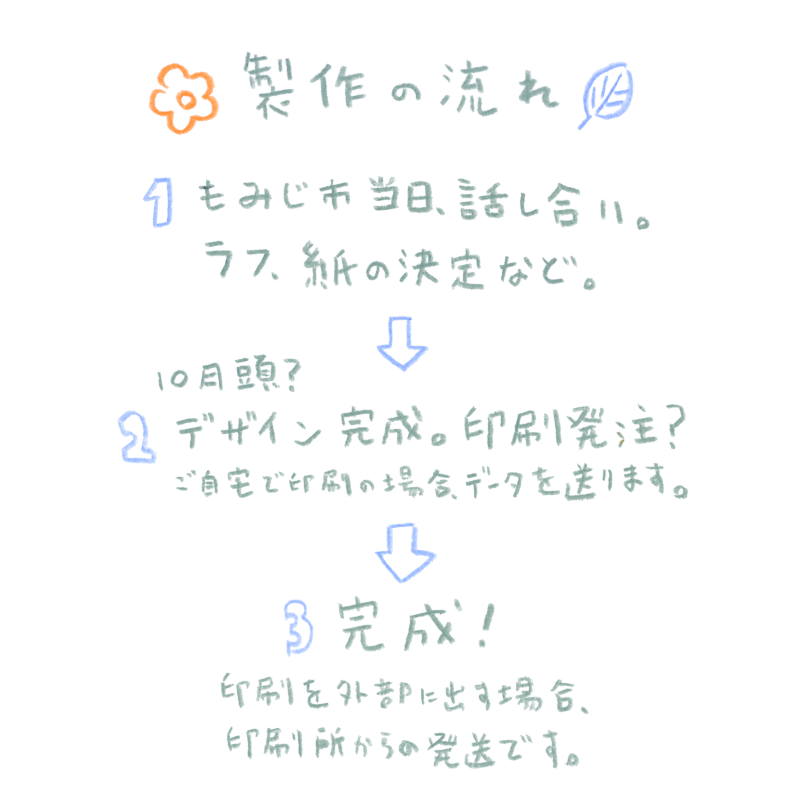 製作の流れ
1 もみじ市当日、話し合い。
ラフ、紙の決定など。
10月頭?
2 デザイン完成。印刷発注?
ご自宅で印刷の場合、データを送ります。
3 完成!
印刷を外部に出す場合、
印刷所からの発送です。